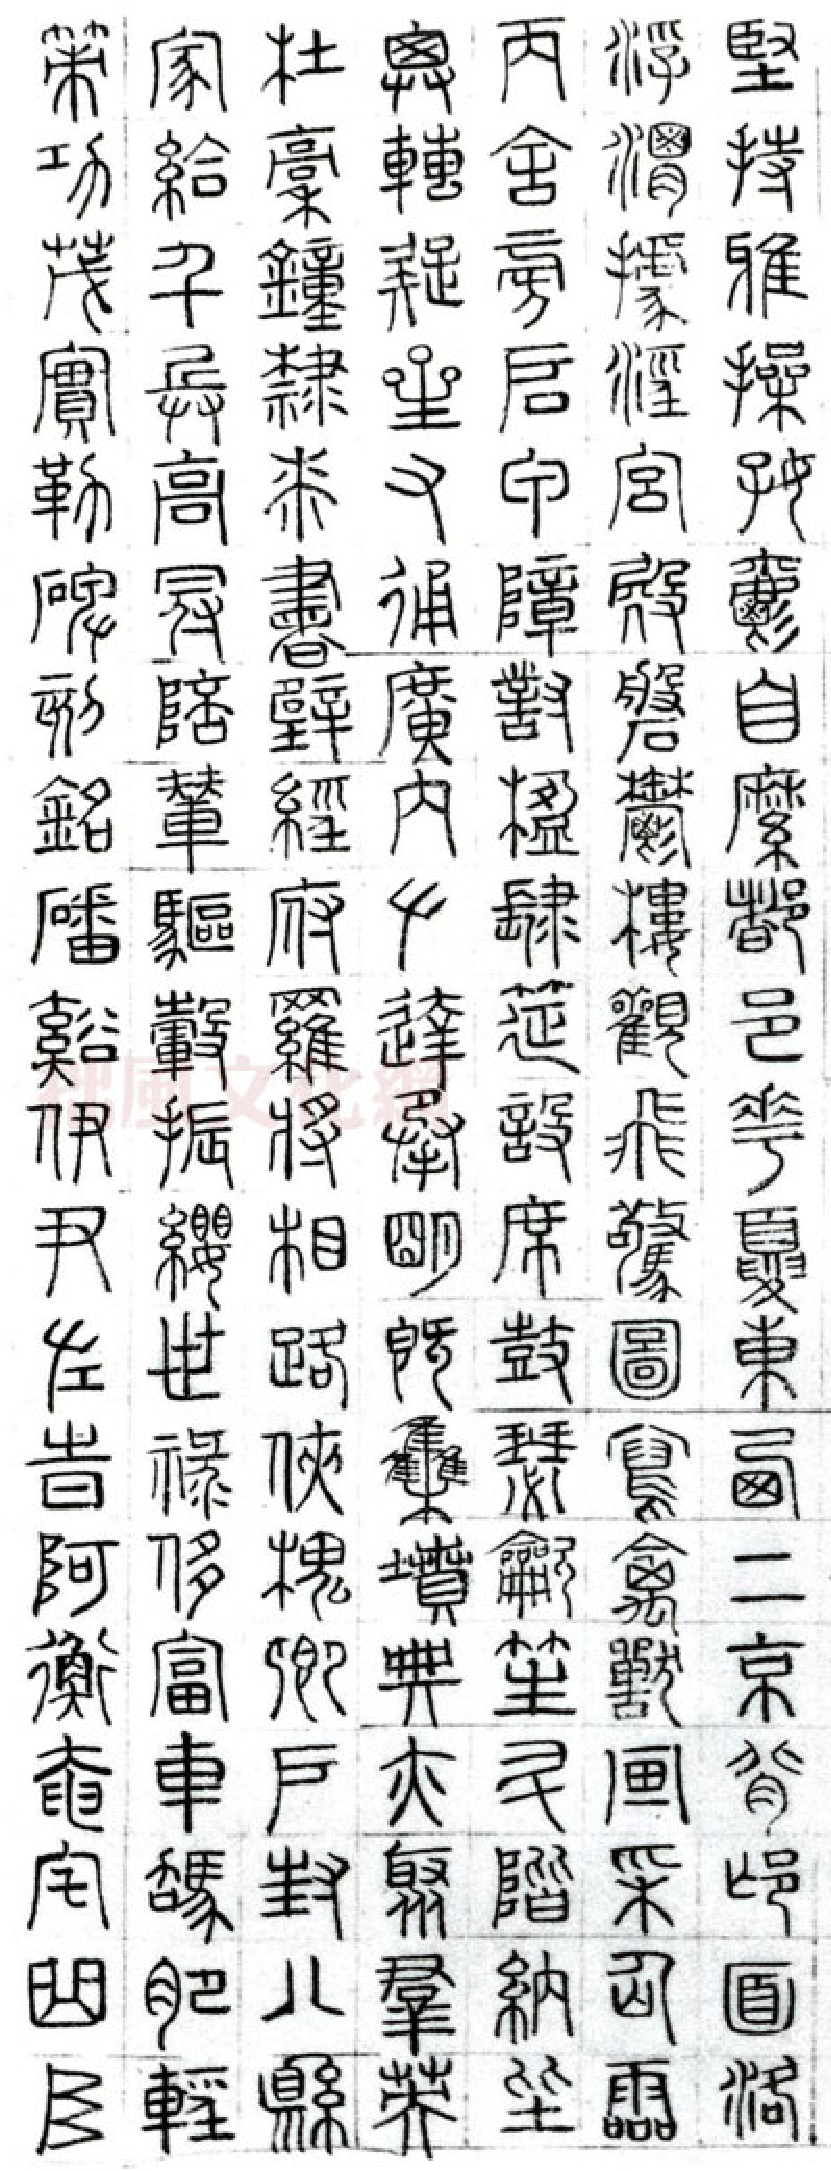 堅持雅操好爵自縻都邑華夏東西二京背邙面洛
浮渭據涇宮殿磐鬱樓觀飛驚圖寫禽獸畫采仙靈
丙舍旁啟甲帳對楹肆筵設席鼓瑟吹笙升階納陛
弁轉疑星右通廣內左達承明既集墳典亦聚群英
杜稿鍾隸漆書壁經府羅將相路俠槐卿戶封八縣
家給千兵高冠陪輦驅轂振纓世祿侈富車駕肥輕
策功茂實勒碑刻銘磻溪伊尹佐時阿衡奄宅曲阜